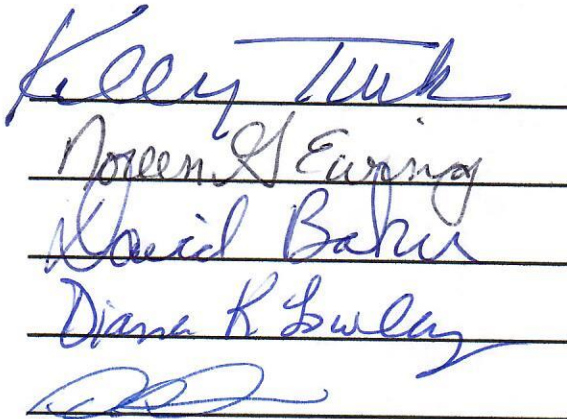 Kelly Turk
Noreen G Ewing
David Baker
Diana K Lowley